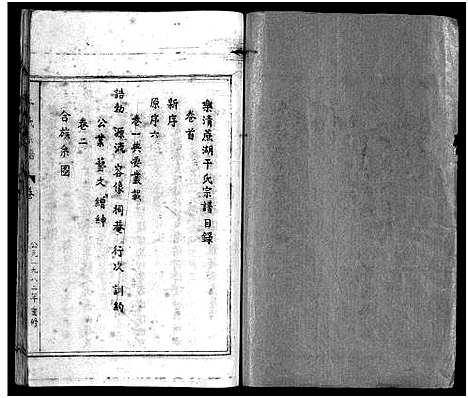 樂清蔗湖干氏宗譜目録
卷首
新序
原序六
卷一典要叢載
誥勅 源流 容像 祠墓 行次 訓約
公業 藝文 縉紳
卷二
合族系圖
公元一九八二年重修